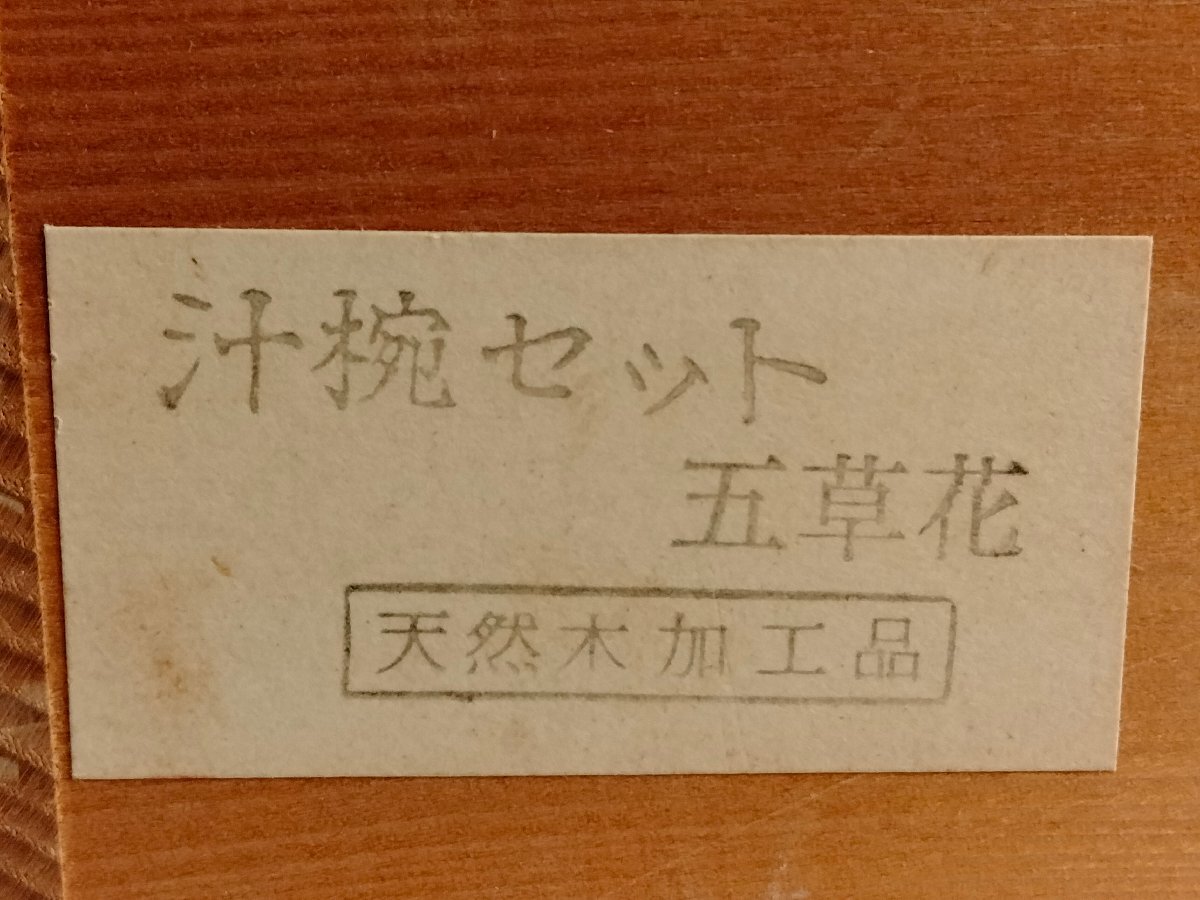 汁椀セット
五草花
天然木加工品